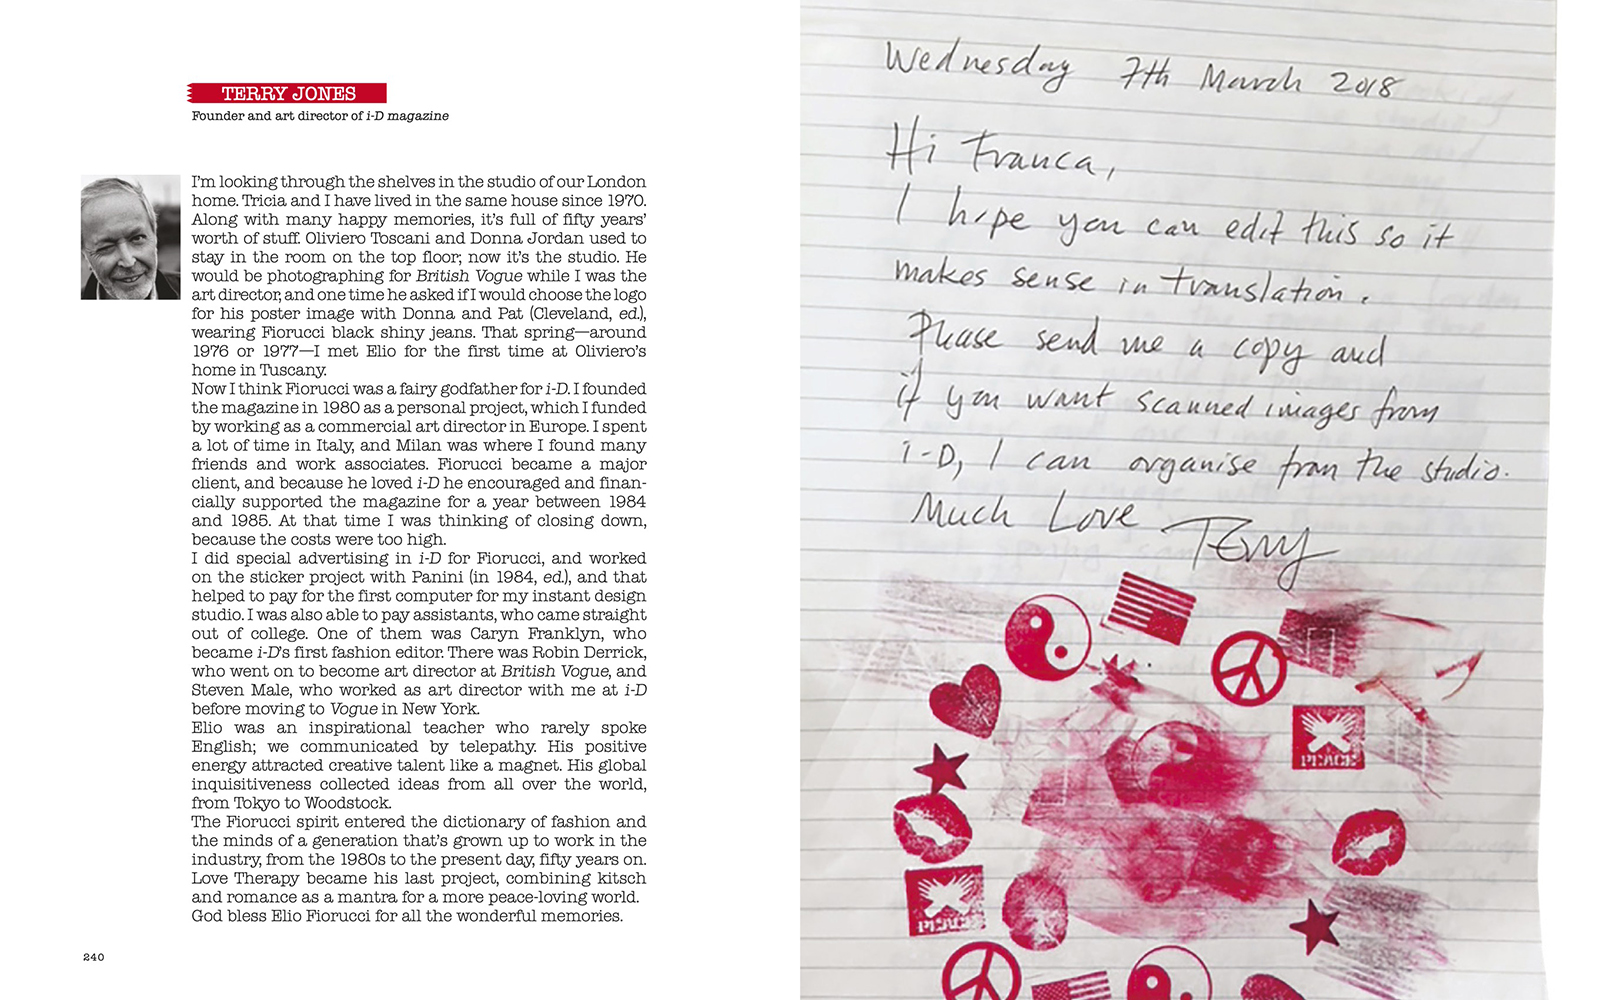 TERRY JONES
Founder and art director of i-D magazine
I'm looking through the shelves in the studio of our London
home. Tricia and I have lived in the same house since 1970.
Along with many happy memories, it's full of fifty years'
worth of stuff. Oliviero Toscani and Donna Jordan used to
stay in the room on the top floor; now it's the studio. He
would be photographing for British Vogue while I was the
art director, and one time he asked if I would choose the logo
for his poster image with Donna and Pat (Cleveland, ed.),
wearing Fiorucci black shiny jeans. That spring—around
1976 or 1977—I met Elio for the first time at Oliviero's
home in Tuscany.
Now I think Fiorucci was a fairy godfather for i-D. I founded
the magazine in 1980 as a personal project, which I funded
by working as a commercial art director in Europe. I spent
a lot of time in Italy, and Milan was where I found many
friends and work associates. Fiorucci became a major
client, and because he loved i-D he encouraged and finan-
cially supported the magazine for a year between 1984
and 1985. At that time I was thinking of closing down,
because the costs were too high.
I did special advertising in i-D for Fiorucci, and worked
on the sticker project with Panini (in 1984, ed.), and that
helped to pay for the first computer for my instant design
studio. I was also able to pay assistants, who came straight
out of college. One of them was Caryn Franklyn, who
became i-D's first fashion editor. There was Robin Derrick,
who went on to become art director at British Vogue, and
Steven Male, who worked as art director with me at i-D
before moving to Vogue in New York.
Elio was an inspirational teacher who rarely spoke
English; we communicated by telepathy. His positive
energy attracted creative talent like a magnet. His global
inquisitiveness collected ideas from all over the world,
from Tokyo to Woodstock.
The Fiorucci spirit entered the dictionary of fashion and
the minds of a generation that's grown up to work in the
industry, from the 1980s to the present day, fifty years on.
Love Therapy became his last project, combining kitsch
and romance as a mantra for a more peace-loving world.
God bless Elio Fiorucci for all the wonderful memories.
240
Wednesday 7th March 2018
Hi Franca,
I hope you can edit this so it
makes sense in translation.
Please send me a copy and
if you want scanned images from
i-D, I can organise from the studio.
Much Love Terry
PEACE